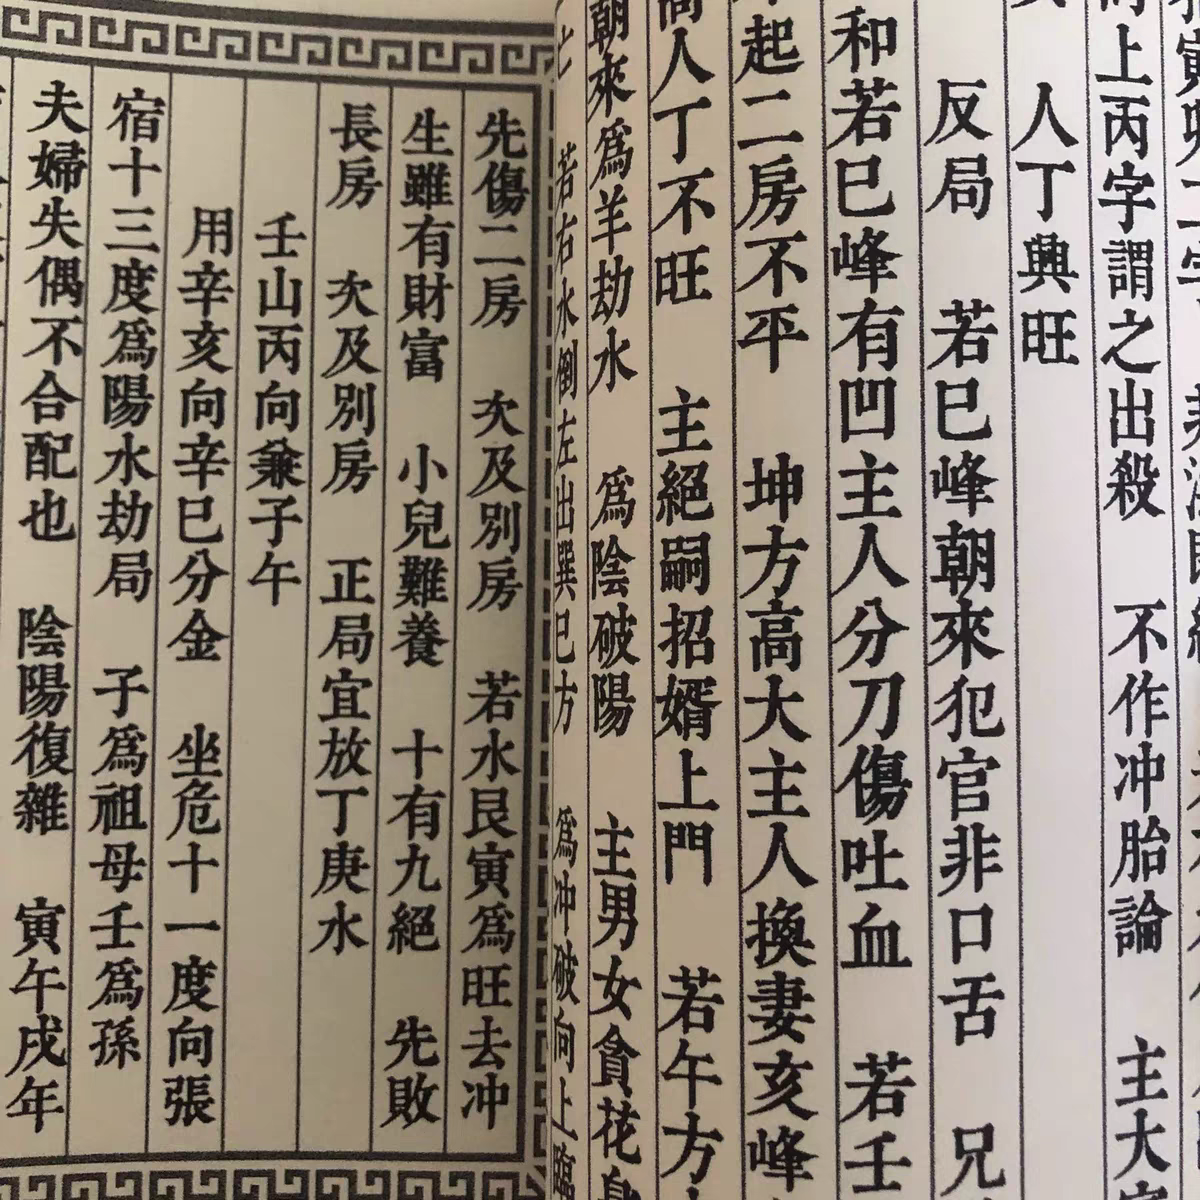 上丙字謂之出殺 不作冲胎論 主大
人丁興旺
反局 若巳峰朝來犯官非口舌 兄
和若巳峰有凹主人分刀傷吐血 若壬
起二房不平 坤方高大主人換妻亥峰
高人丁不旺 主絕嗣招婿上門 若午方
朝來為羊劫水 為陰破陽 主男女貪花
亡 若右水倒左出巽巳方 為冲破向上臨
先傷二房 次及別房 若水艮寅為旺去冲
生雖有財富 小兒難養 十有九絕 先敗
長房 次及別房 正局宜放丁庚水
壬山丙向兼子午
用辛亥向辛巳分金 坐危十一度向張
宿十三度為陽水劫局 子為祖母壬為孫
夫婦失偶不合配也 陰陽復雜 寅午戌年